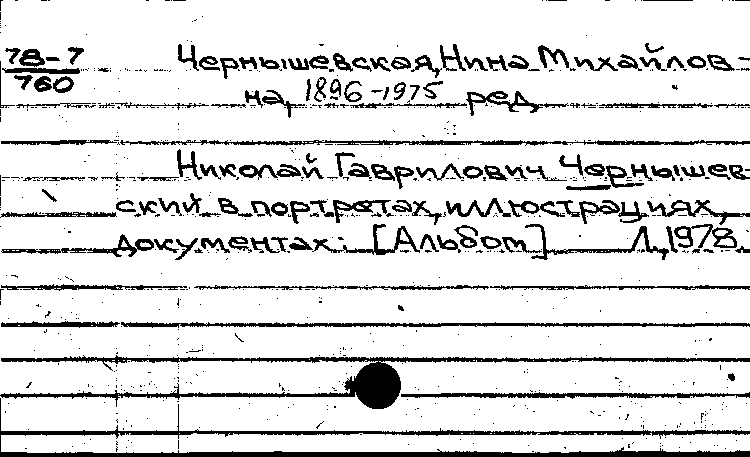 78-7
760
Чернышевская, Нина Михайлов-
на, 1896-1975 ред.
Николай Гаврилович Чернышев-
ский в портретах, иллюстрациях,
документах: [Альбом] Л., 1978.